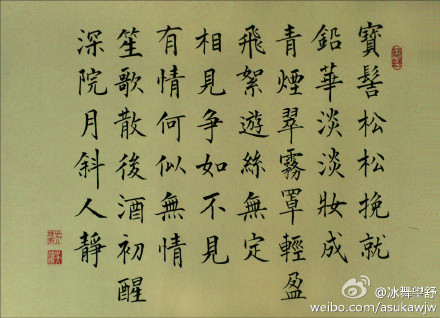 寶髻松松挽就
鉛華淡淡妝成
青煙翠霧罩輕盈
飛絮遊絲無定
相見争如不見
有情何似無情
笙歌散後酒初醒
深院月斜人靜
@冰舞學舒
weibo.com/asukawjw